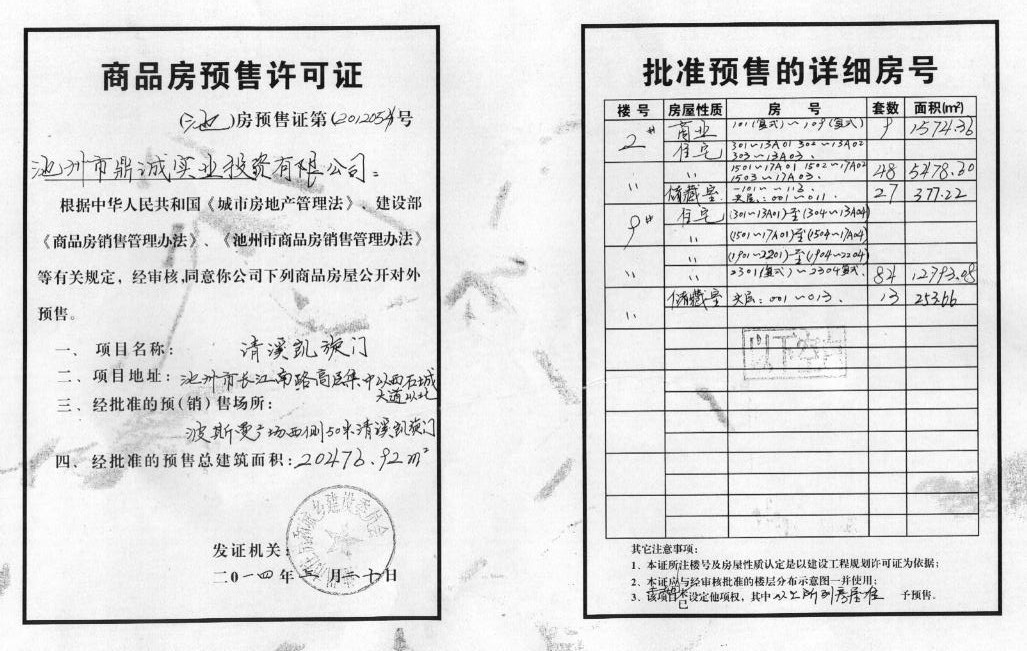 商品房预售许可证
(池)房预售证第(2012054)号
池州市鼎诚实业投资有限公司:
根据中华人民共和国《城市房地产管理法》、建设部
《商品房销售管理办法》、《池州市商品房销售管理办法》
等有关规定，经审核,同意你公司下列商品房屋公开对外
预售。
一、项目名称: 清溪凯旋门
二、项目地址: 池州市长江南路高压集中以西石城
大道以北
三、经批准的预(销)售场所:
波斯曼广场西侧50米清溪凯旋门
四、经批准的预售总建筑面积:20476.92m²
城乡建设委员会
发证机关:
二0一四年 月二十日
批准预售的详细房号
楼号 房屋性质 房号 套数 面积(m²)
2# 商业 101(复式)~109(复式) 9 1574.36
住宅 301~13A01 302~13A02
303~13A03.
〃 1501~17A01 1502~17A02
1503~17A03. 48 5478.30
〃 储藏室 -101~-113.
夹层:001~011. 27 377.22
9# 住宅 (301~13A01)至(304~13A04)
〃 (1501~17A01)至(1504~17A04)
〃 (1901~2201)至(1904~2204)
〃 〃 2301(复式)~2304复式. 84 12793.08
〃 储藏室 夹层:001~013. 13 253.66
以下空白
其它注意事项:
1、本证所注楼号及房屋性质认定是以建设工程规划许可证为依据;
2、本证应与经审核批准的楼层分布示意图一并使用;
3、该项目 设定他项权，其中以上所列房屋准 予预售.